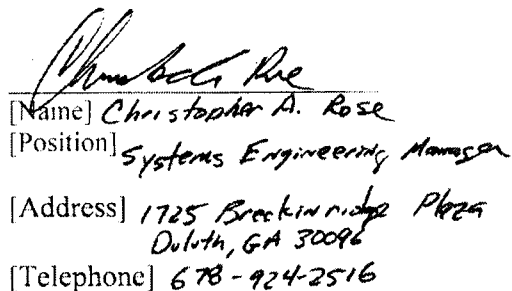 [Name] Christopher A. Rose
[Position] Systems Engineering Manager
[Address] 1725 Breckinridge Plaza
Duluth, GA 30096
[Telephone] 678-924-2516